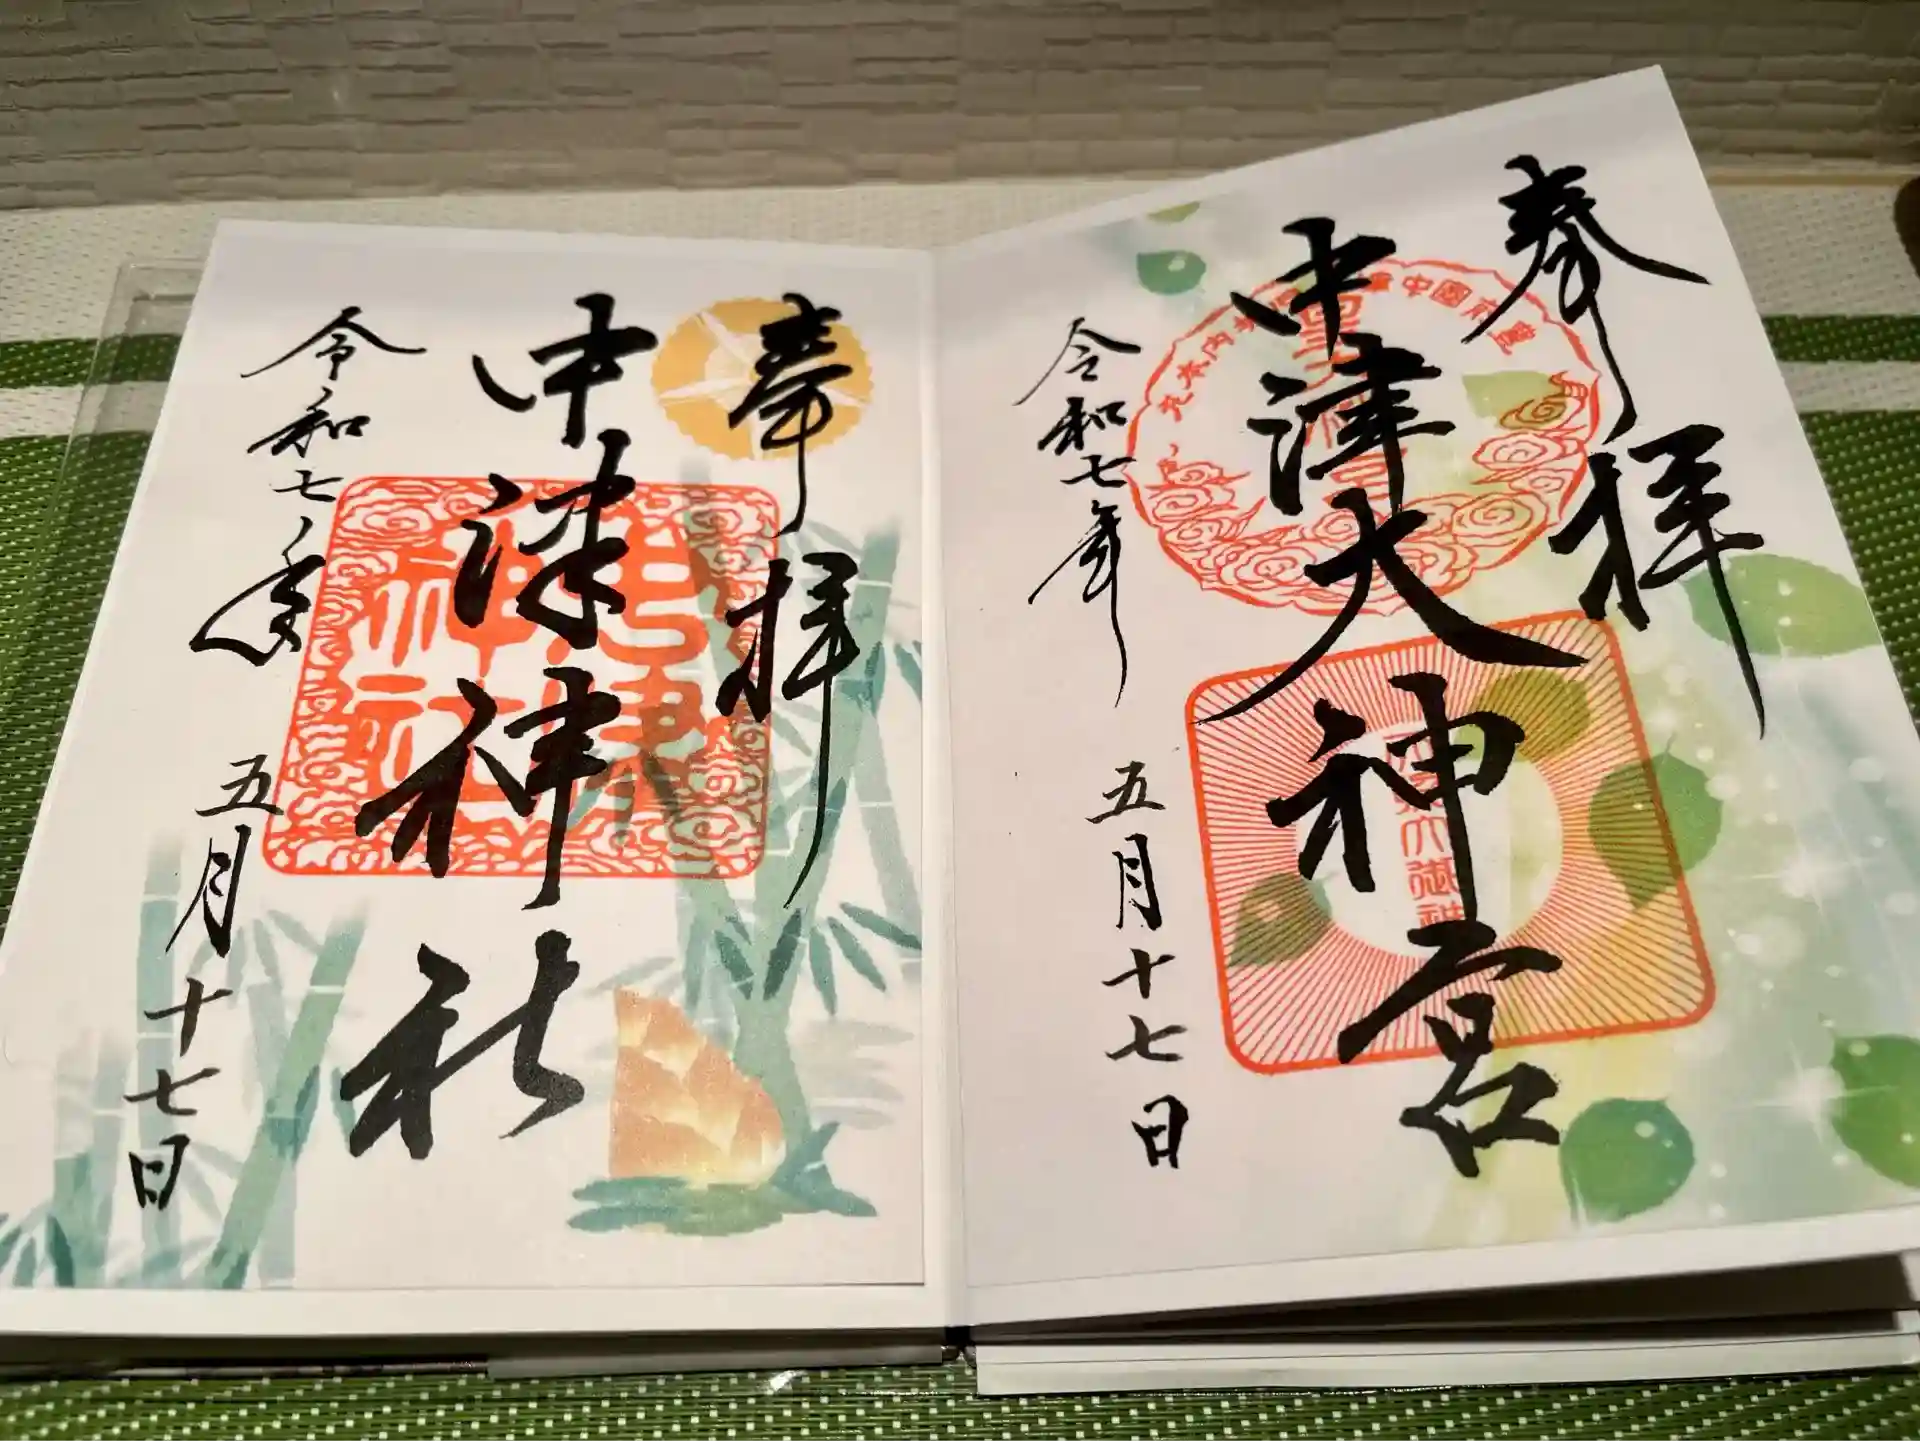 奉拝
中津大神宮
令和七年
五月十七日
奉拝
中津神社
令和七年
五月十七日